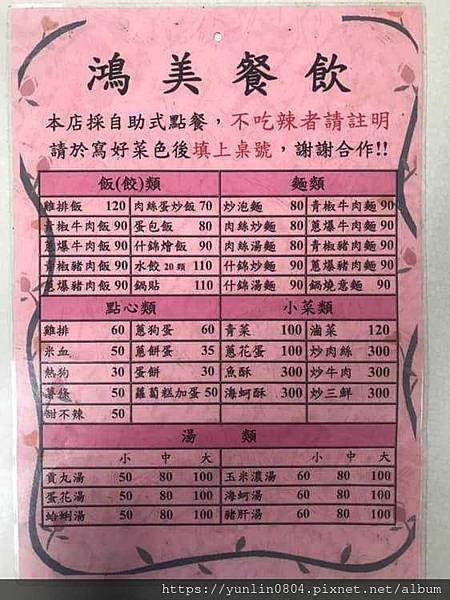 鴻美餐飲
本店採自助式點餐，不吃辣者請註明
請於寫好菜色後填上桌號，謝謝合作!!
飯(餃)類 麵類
雞排飯 120 肉絲蛋炒飯 70 炒泡麵 80 青椒牛肉麵 90
青椒牛肉飯 90 蛋包飯 80 肉絲炒麵 80 蔥爆牛肉麵 90
蔥爆牛肉飯 90 什錦燴飯 90 肉絲湯麵 80 青椒豬肉麵 90
青椒豬肉飯 90 水餃 20顆 110 什錦炒麵 90 蔥爆豬肉麵 90
蔥爆豬肉飯 90 鍋貼 110 什錦湯麵 90 鍋燒意麵 90
點心類 小菜類
雞排 60 蔥狗蛋 60 青菜 100 滷菜 120
米血 50 蔥餅蛋 35 蔥花蛋 100 炒肉絲 300
熱狗 30 蛋餅 30 魚酥 300 炒牛肉 300
薯條 50 蘿蔔糕加蛋 50 海蚵酥 300 炒三鮮 300
甜不辣 50
湯類
小 中 大 小 中 大
貢丸湯 50 80 100 玉米濃湯 60 80 100
蛋花湯 50 80 100 海蚵湯 60 80 100
蛤蜊湯 50 80 100 豬肝湯 60 80 100
https://yunlin0804.pixnet.net/album